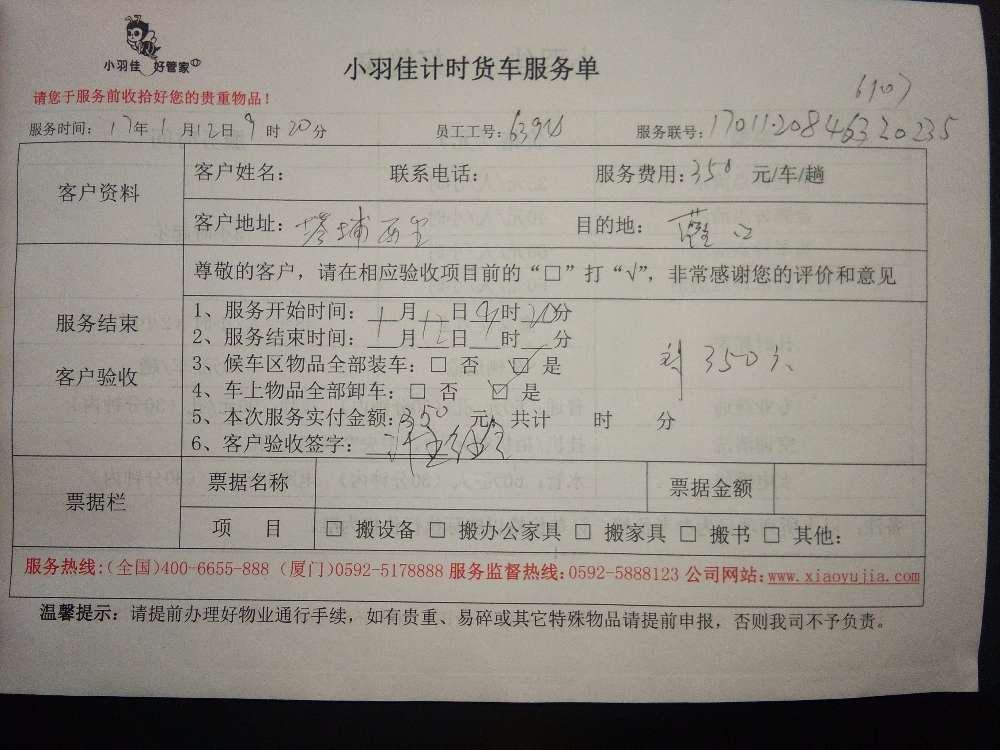 小羽佳 好管家
小羽佳计时货车服务单
6107
请您于服务前收拾好您的贵重物品！
服务时间： 17年 1月12日9时20分 员工工号： 服务联号：
客户资料 客户姓名： 联系电话： 服务费用：350 元/车/趟
客户地址：塔埔西里 目的地：
尊敬的客户，请在相应验收项目前的“□”打“√”，非常感谢您的评价和意见
服务结束
客户验收
1、服务开始时间：1月12日9时20分
2、服务结束时间：1月12日 时 分
3、候车区物品全部装车：□ 否 □ 是
350元
4、车上物品全部卸车：□ 否 □ 是
5、本次服务实付金额：350 元，共计 时 分
6、客户验收签字：
票据栏 票据名称 票据金额
项 目 □ 搬设备 □ 搬办公家具 □ 搬家具 □ 搬书 □ 其他：
服务热线：(全国)400-6655-888 (厦门)0592-5178888 服务监督热线：0592-5888123 公司网站：www.xiaoyujia.com
温馨提示：请提前办理好物业通行手续，如有贵重、易碎或其它特殊物品请提前申报，否则我司不予负责。